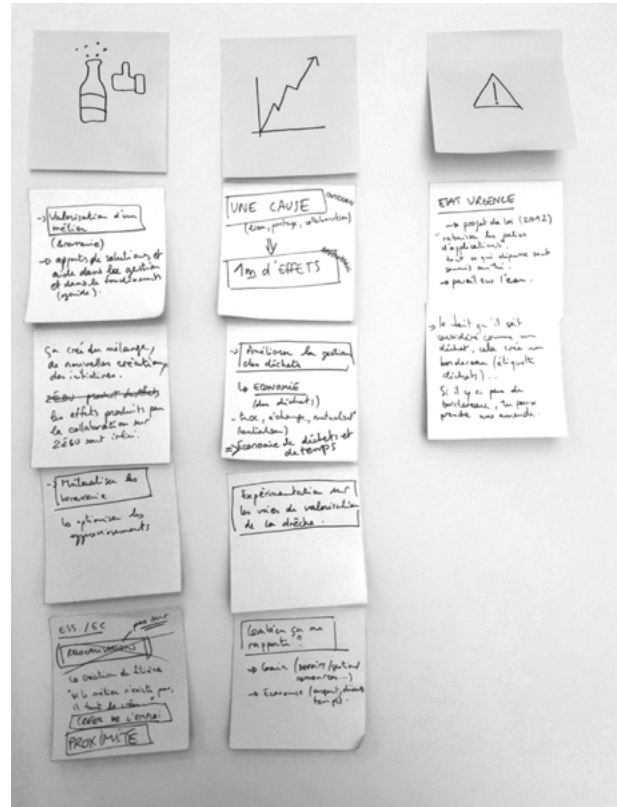 !
-> Valorisation d'un
métier
(brasserie)
-> apports de solutions et
aide dans la gestion
et dans le fonctionnement
Ça crée du mélange,
de nouvelles créations
des initiatives.
les effets produits par
la collaboration sur
ZÉBU sont infini.
-> Mutualiser les
brasserie
↳ optimiser les
approvisionnements
ESS. / EC
pas sur
↳ création de filière
"si le métier n'existe pas,
il faut le créer"
CRÉER DE L'EMPLOI
PROXIMITÉ
UNE CAUSE
(écon, partage, collaboration)
1m d'EFFETS
-> Améliorer la gestion
des déchets
↳ ECONOMIE
(des déchets)
- troc, échange, mutualisation
=> Économie de déchets et
de temps
Expérimentation sur
les voies de valorisation
de la drêche.
Combien ça me
rapporte ?
-> Gain
-> Economie (argent, déchets
temps).
ETAT URGENCE
-> projet de loi (2012)
d'applications.
tout ce qui dépasse sont
-> pareil sur l'eau.
-> le fait qu'il soit
considéré comme un
déchet, cela crée un
bordereau (étiquette
déchets) ...
Si il y a pas de
bordereaux, tu peux
prendre une amende.